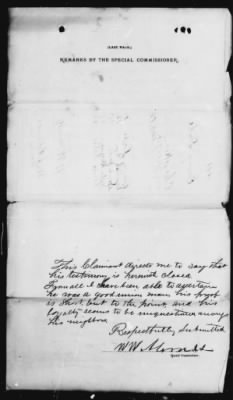 (LAST PAGE.)
REMARKS BY THE SPECIAL COMMISSIONER.
This Claimant directs me to say that
his testimony is herewith closed
From all I have been able to ascertain
he was a good union man, his proof
is short but to the point, and his
loyalty seems to be unquestioned among
his neighbors
Respectfully Submitted
W W
Special Commissioner.